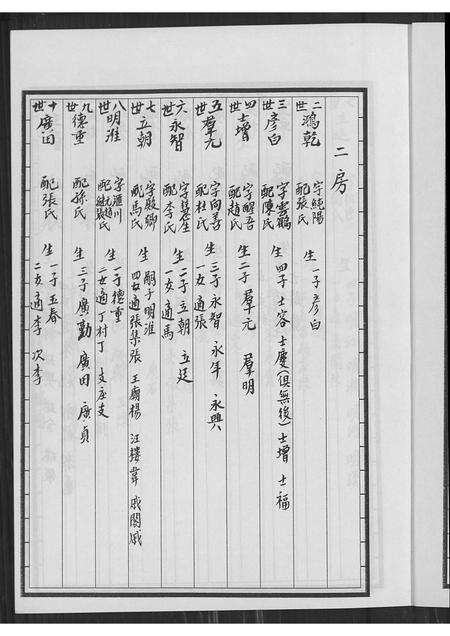 二房
二世 鴻乾 字純陽 配張氏 生一子彥白
三世 彥白 字雲鶴 配陳氏 生四子 士容 士慶(俱無後) 士增 士福
四世 士增 字醒吾 配趙氏 生二子 羣元 羣明
五世 羣元 字向善 配杜氏 生三子 永智 永年 永興 一女適張
六世 永智 配李氏 生二子 立朝 立廷 一女適馬
七世 立朝 字殿卿 配馬氏 生嗣子明淮 四女適張集張 王廟楊 汪樓韋 戚閣戚
八世 明淮 字滙川 配 趙氏 生一子德重 二女適丁村丁 支庄支
九世 德重 配孫氏 生三子 廣勤 廣田 廣貞
十世 廣田 配張氏 生一子玉春 二女適李 次李